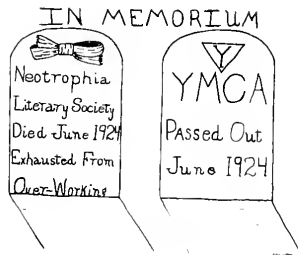 IN MEMORIUM
Neotrophia
Literary Society
Died June 1924
Exhausted From
Over-Working
Y
YMCA
Passed Out
June 1924